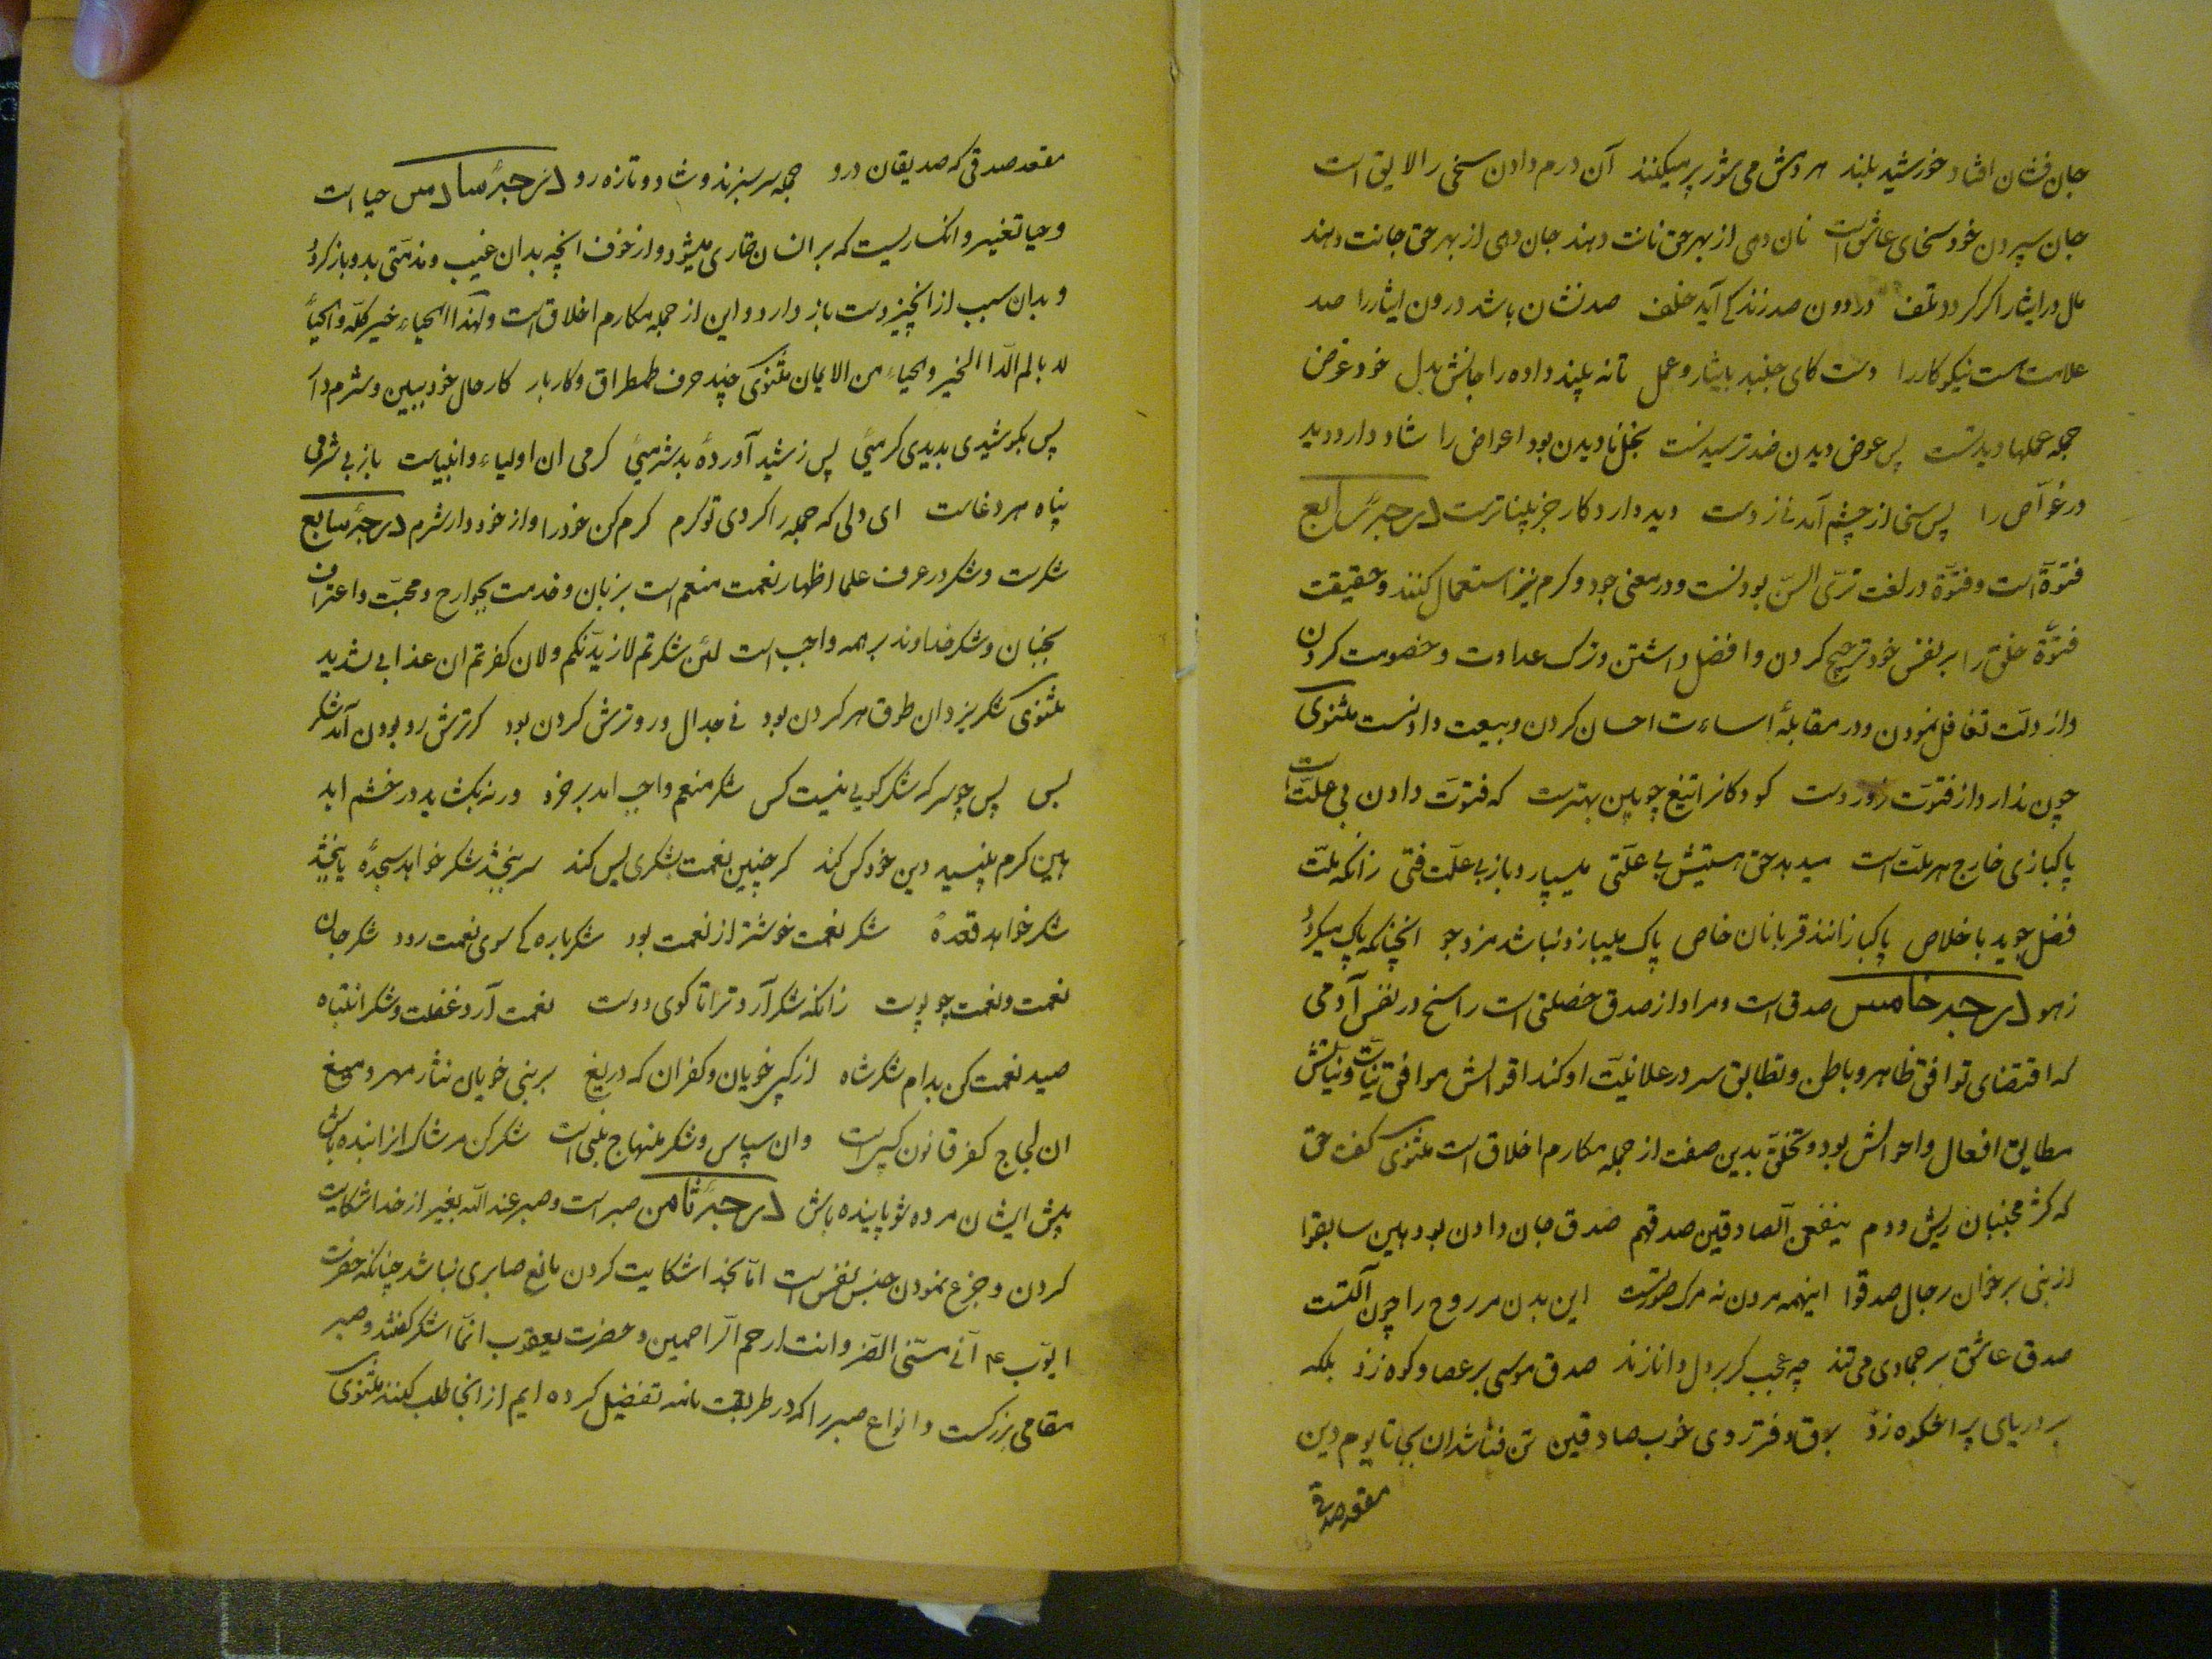 جان فشان افتاد خورشید بلند هر دمش می شود پر میکنند آن درم دادن سخی را لایق است
جان سپردن خود سخای عاشق است نان دهی از بهر حق نانت دهند جان دهی از بهر حق جانت دهند
مال در ایثار اگر گردد تلف در درون صد زندگی آید خلف صد نشان باشد درون ایثار را صد
علامت هست نیکو کار را دست کای جنبد بایثار و عمل تا نه بیند داده را جانش بدل خود عوض
جمله عملها دیدنست پس عوض دیدن ضد ترسیدنست بخل نادیدن بود اعواض را شاد دارد دید
در غواص را پس سخا از چشم آمد نی ز دست دید دارد کار جز بینا نرست درجهٔ رابع
فتوّة است و فتوّة در لغت بودنست و در معنی جود و کرم نیز استعمال کنند و حقیقت
فتوّة خلق را بر نفس خود ترجیح کردن و افضل داشتن و ترک عداوت و خصومت کردن
و از دلّت تغافل نمودن و در مقابلهٔ اساءت احسان کردن و بیعت دادنست مثنوی
چون ندارد از فتوّت زور دست کودکانرا تیغ چوبین بهترست که فتوّت دادن بی علّت است
پاکبازی خارج هر ملّت است میدهد حق هستیش بی علّتی میسپارد باز بی علّت فتی زانکه ملّت
فضل جوید با خلاص پاکبازانند قربانان خاص پاک میبازد نباشد مزد جو آنچنانکه پاک میگیرد
ز هو درجهٔ خامس صدق است و مراد از صدق خصلتی است راسخ در نفس آدمی
که اقتضای توافق ظاهر و باطن و تطابق سر و علانیّت او کند اقوالش موافق نیّات و نیّاتش
مطابق افعال و احوالش بود و تخلّق بدین صفت از جمله مکارم اخلاق است مثنوی گفت حق
که کژ مجنبان ریش و دم ینفعنّ الصادقین صدقهم صدق جان دادن بود هین سابقوا
از نبی برخوان رجال صدقوا اینهمه مردن نه مرگ صورتست این بدن مر روح را چون آلتست
صدق عاشق بر جمادی می تند چه عجب گر بر دل دانا زند صدق موسی بر عصا و کوه زد بلکه
بر دریای پر اشکوه زد تن فنا شد آن بجا تا یوم دین
مقعد صدقی
مقعد صدقی که صدیقان درو جمله سرسبزند و شاد و تازه رو درجهٔ سادس حیا است
و حیا تغییر و انکساریست که بر انسان طاری میشود و از خوف آنچه بدان عیب و مذمّتی بدو باز گردد
و بدان سبب از آنچیز دست باز دارد و این از جمله مکارم اخلاق است و لهذا الحیاء خیر کلّه و الحیاء
لا الّا الخیر و الحیاء من الایمان مثنوی چند حرف طمطراق و کار بار کار حال خود ببین و شرم دار
پس بکوشیدی بدیدی گرمیی پس ز شید آوردهٔ بیشرمیی گرمی آن اولیاء و انبیاست باز بی شرمی
پناه هر دغاست ای دلی که جمله را کردی تو گرم گرم کن خود را و از خود دار شرم درجهٔ سابع
شکرست و شکر در عرف علما اظهار نعمت منعم است بزبان و خدمت بجوارح و محبّت و اعتراف
بجنان و شکر خداوند بر همه واجب است لئن شکرتم لازیدنّکم و لان کفرتم ان عذابی لشدید
مثنوی شکر یزدان طوق هر گردن بود نی جدال و رو ترش کردن بود گر ترش رو بودن آمد شکر
بس پس چو سرکه شکر گویی نیست کس شکر منعم واجب آمد بر خرد ورنه بگشاید در خشم ابد
هین کرم بینید وین خود کس کند کز چنین نعمت بشکری بس کند سر ببخشد شکر خواهد سجدهٔ پا ببخشد
شکر خواهد قعدهٔ شکر نعمت خوشتر از نعمت بود شکر باره کی سوی نعمت رود شکر جان
نعمت و نعمت چو پوست زانکه شکر آرد ترا تا کوی دوست نعمت آرد غفلت و شکر انتباه
صید نعمت کن بدام شکر شاه از کپی خویان و کفران که دریغ بر نبی خویان نثار مهر و میغ
آن لجاج کفر قانون کپیست وان سپاس و شکر منهاج نبی است شکر کن مر شاکرانرا بنده باش
پیش ایشان مرده شو پاینده باش درجهٔ ثامن صبر است و صبر عند الله بغیر از خدا شکایت
کردن و جزع نمودن حبس نفس است امّا بخدا شکایت کردن مانع صابری نباشد چنانکه حضرت
ایّوب ع انّی مسّنی الضر و انت ارحم الراحمین و حضرت یعقوب انّما اشکو گفتند و صبر
مقامی بزرگست و انواع صبر را که در طریقت تفضیل کرده ایم از انجا طلب کنند مثنوی